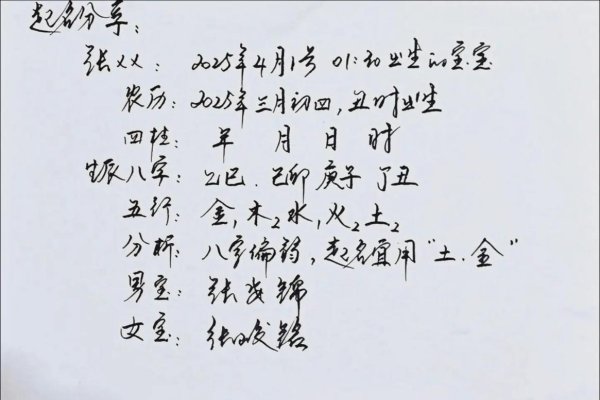 起名分享:
张XX: 2025年4月1号 01:30出生的宝宝
农历: 2025年三月初四,丑时出生
四柱: 年 月 日 时
生辰八字: 乙巳.己卯 庚子 丁丑
五行: 金,木2水,火2土2
分析: 八字偏弱,起名宜用"土.金"
男宝: 张 锦
女宝: 张峻铭